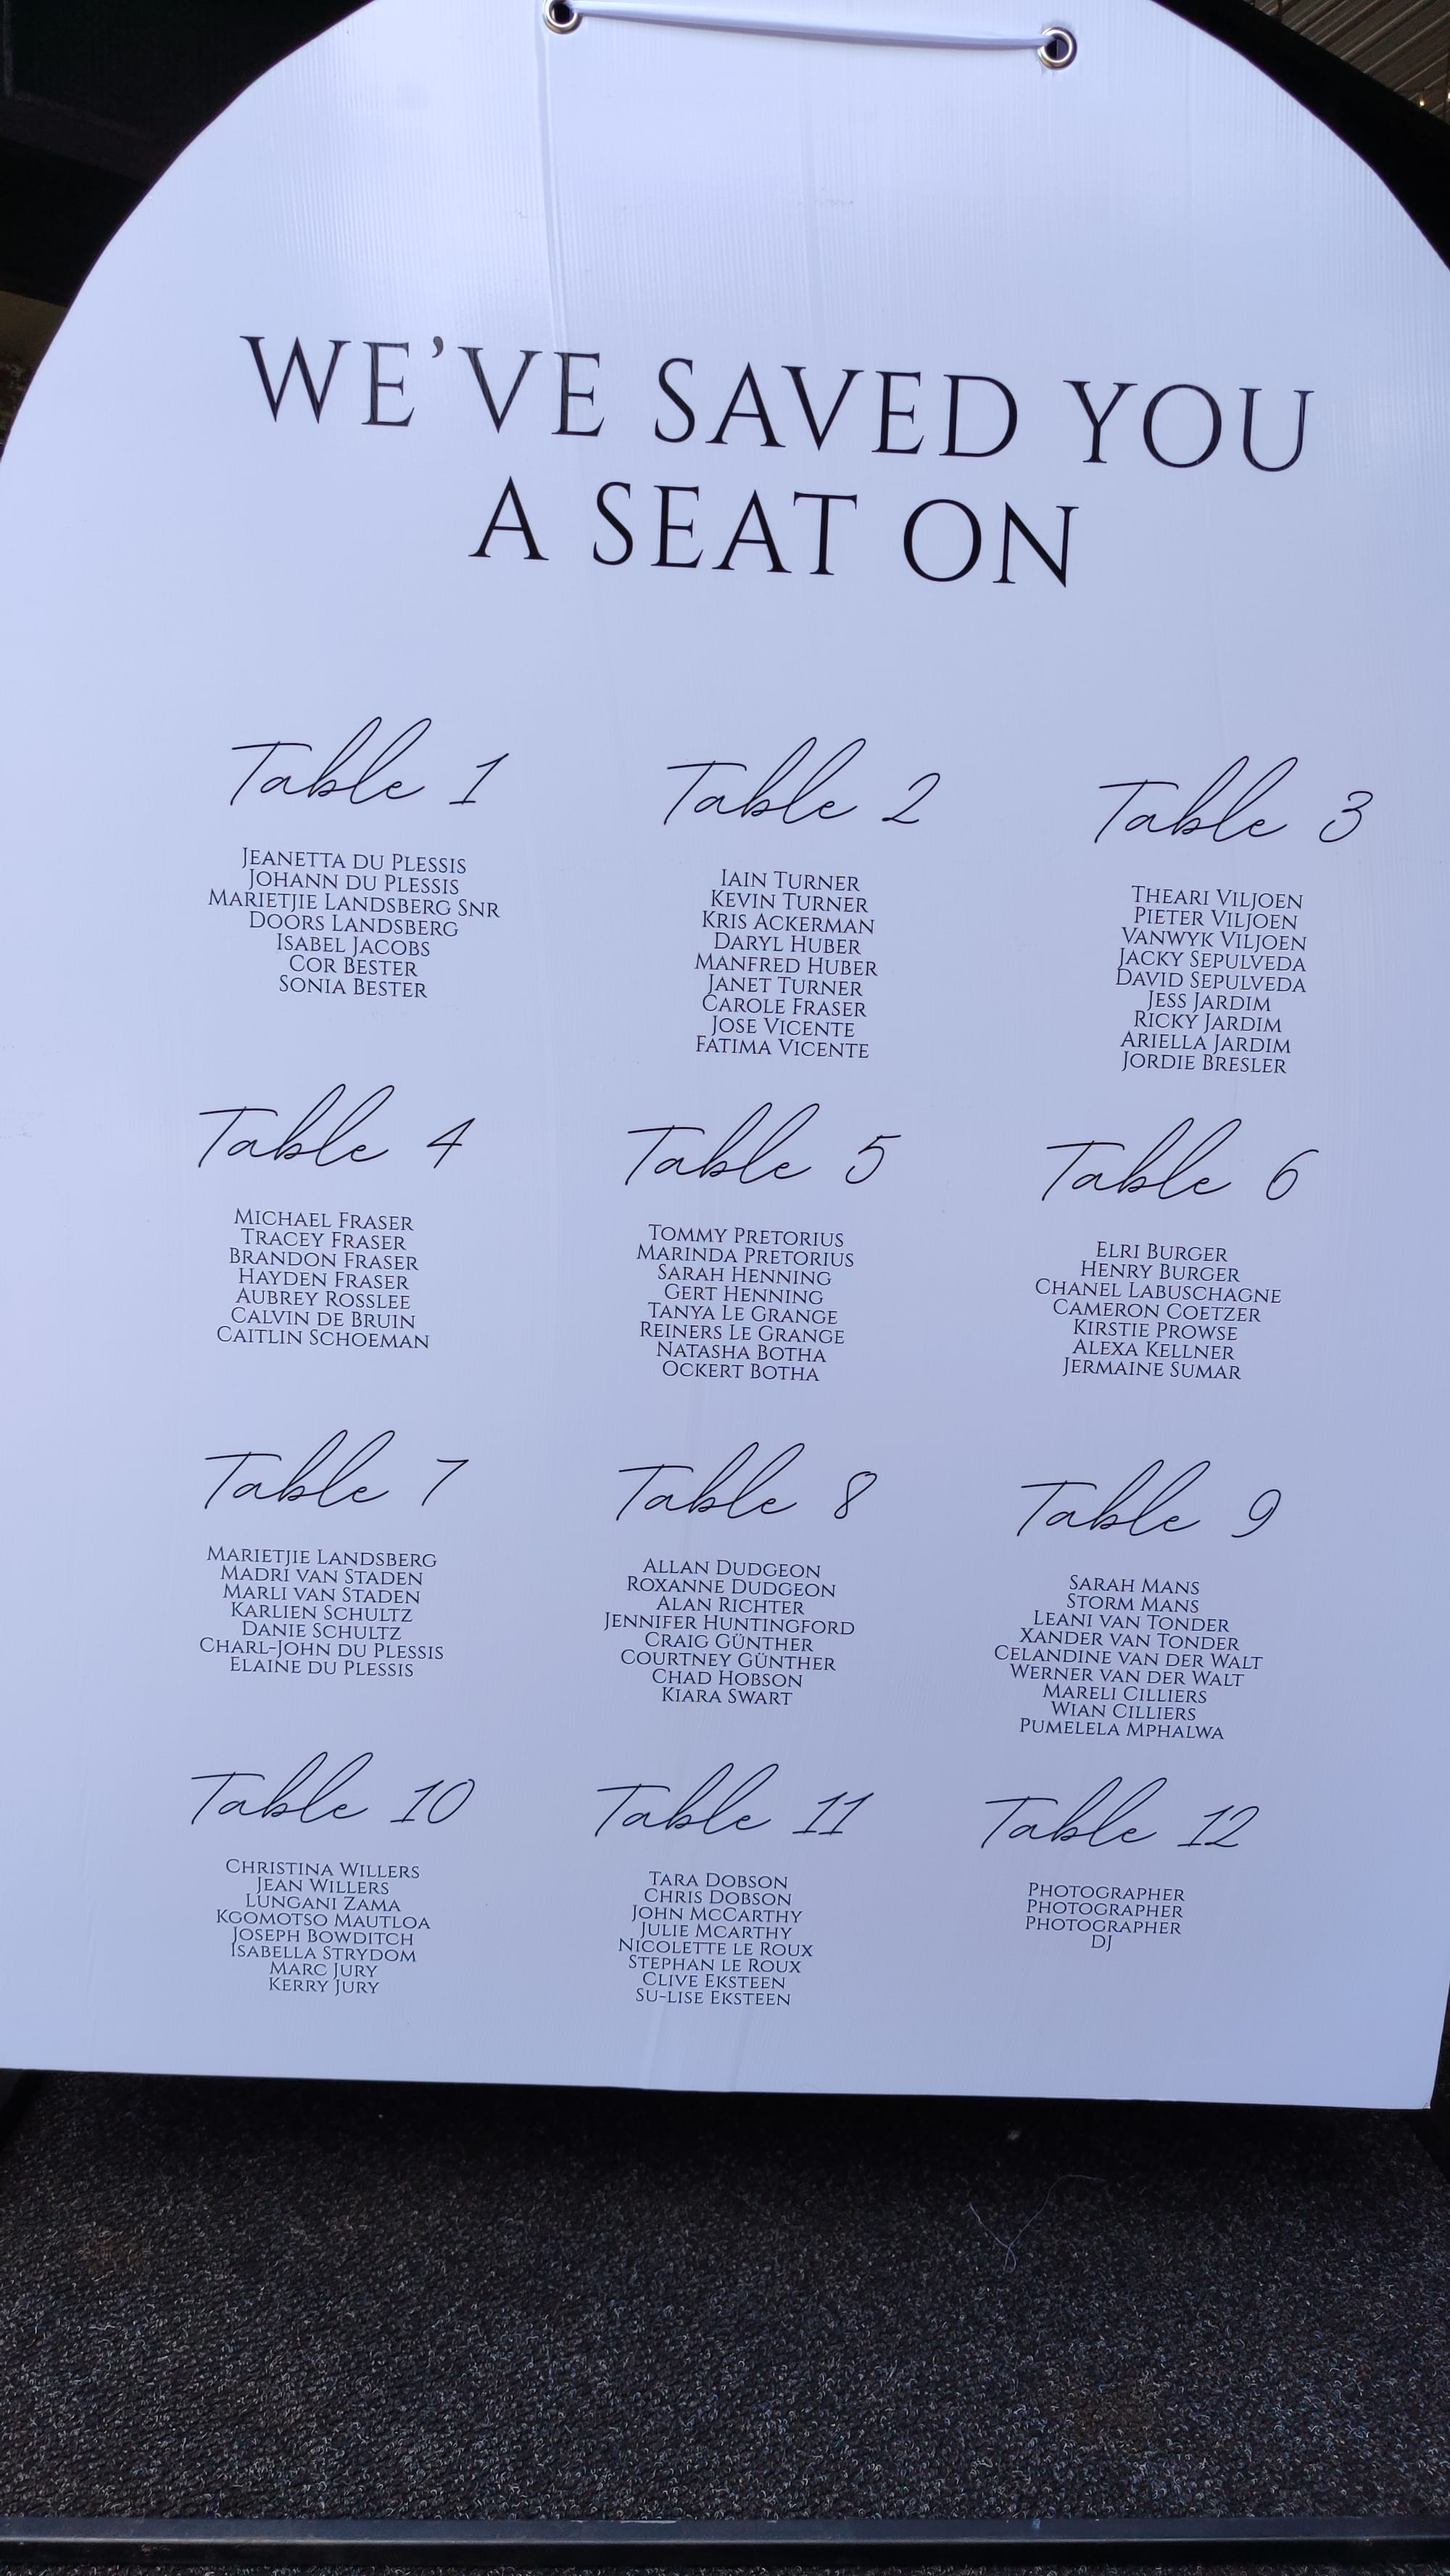 WE'VE SAVED YOU
A SEAT ON
Table 1
JEANETTA DU PLESSIS
JOHANN DU PLESSIS
MARIETJIE LANDSBERG SNR
DOORS LANDSBERG
ISABEL JACOBS
COR BESTER
SONIA BESTER
Table 2
IAIN TURNER
KEVIN TURNER
KRIS ACKERMAN
DARYL HUBER
MANFRED HUBER
JANET TURNER
CAROLE FRASER
JOSE VICENTE
FATIMA VICENTE
Table 3
THEARI VILJOEN
PIETER VILJOEN
VANWYK VILJOEN
JACKY SEPULVEDA
DAVID SEPULVEDA
JESS JARDIM
RICKY JARDIM
ARIELLA JARDIM
JORDIE BRESLER
Table 4
MICHAEL FRASER
TRACEY FRASER
BRANDON FRASER
HAYDEN FRASER
AUBREY ROSSLEE
CALVIN DE BRUIN
CAITLIN SCHOEMAN
Table 5
TOMMY PRETORIUS
MARINDA PRETORIUS
SARAH HENNING
GERT HENNING
TANYA LE GRANGE
REINERS LE GRANGE
NATASHA BOTHA
OCKERT BOTHA
Table 6
ELRI BURGER
HENRY BURGER
CHANEL LABUSCHAGNE
CAMERON COETZER
KIRSTIE PROWSE
ALEXA KELLNER
JERMAINE SUMAR
Table 7
MARIETJIE LANDSBERG
MADRI VAN STADEN
MARLI VAN STADEN
KARLIEN SCHULTZ
DANIE SCHULTZ
CHARL-JOHN DU PLESSIS
ELAINE DU PLESSIS
Table 8
ALLAN DUDGEON
ROXANNE DUDGEON
ALAN RICHTER
JENNIFER HUNTINGFORD
CRAIG GÜNTHER
COURTNEY GÜNTHER
CHAD HOBSON
KIARA SWART
Table 9
SARAH MANS
STORM MANS
LEANI VAN TONDER
XANDER VAN TONDER
CELANDINE VAN DER WALT
WERNER VAN DER WALT
MARELI CILLIERS
WIAN CILLIERS
PUMELELA MPHALWA
Table 10
CHRISTINA WILLERS
JEAN WILLERS
LUNGANI ZAMA
KGOMOTSO MAUTLOA
JOSEPH BOWDITCH
ISABELLA STRYDOM
MARC JURY
KERRY JURY
Table 11
TARA DOBSON
CHRIS DOBSON
JOHN MCCARTHY
JULIE MCARTHY
NICOLETTE LE ROUX
STEPHAN LE ROUX
CLIVE EKSTEEN
SU-LISE EKSTEEN
Table 12
PHOTOGRAPHER
PHOTOGRAPHER
PHOTOGRAPHER
DJ